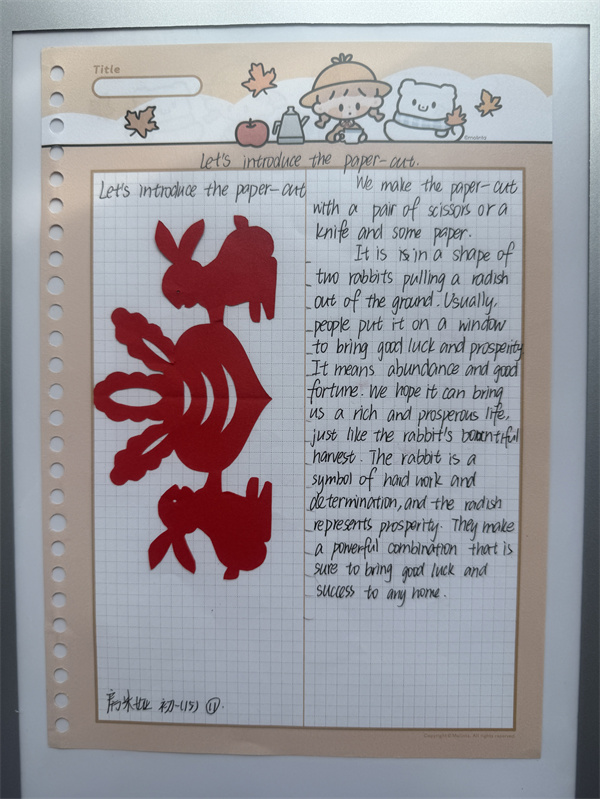 Title
Let's introduce the paper-cut.
Let's introduce the paper-cut
We make the paper-cut
with a pair of scissors or a
knife and some paper.
It is in a shape of
two rabbits pulling a radish
out of the ground. Usually,
people put it on a window
to bring good luck and prosperity
It means abundance and good
fortune. We hope it can bring
us a rich and prosperous life,
just like the rabbit's bountiful
harvest. The rabbit is a
symbol of hard work and
determination, and the radish
represents prosperity. They make
a powerful combination that is
sure to bring good luck and
success to any home.
初一(15) ⑪.